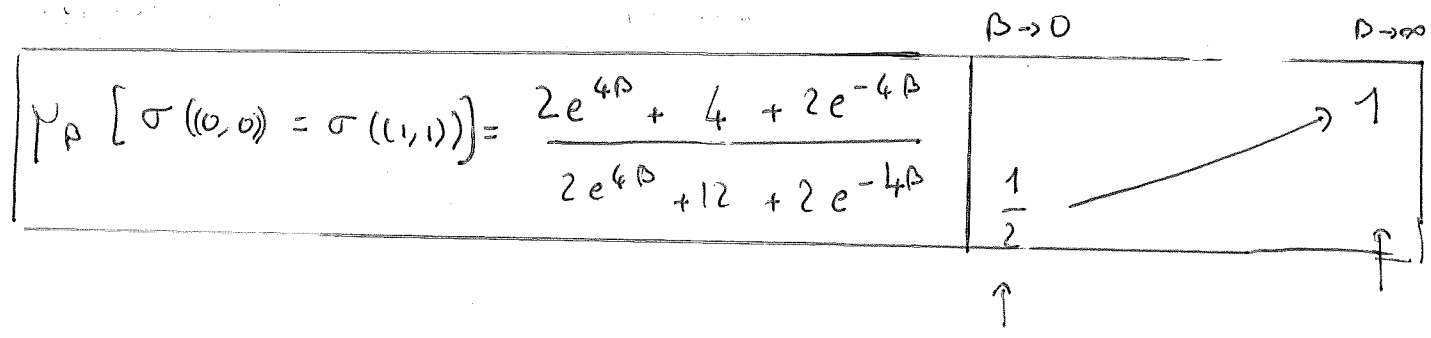 β→0 β→∞
μ_β [σ((0,0)) = σ((1,1))] = \frac{2e^{4β} + 4 + 2e^{-4β}}{2e^{4β} + 12 + 2e^{-4β}} \frac{1}{2} → 1
↑ ↑